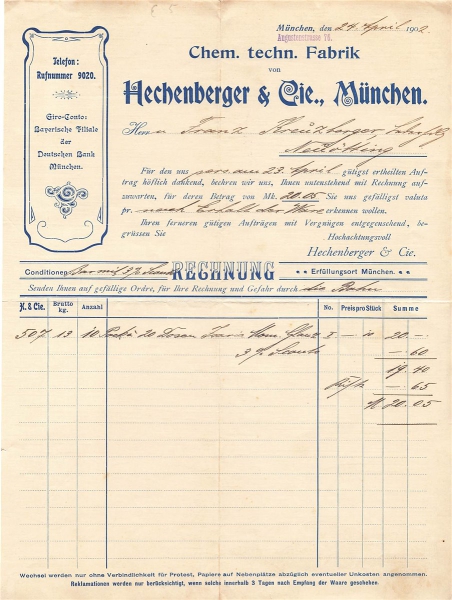 München, den 24 April 1902
Augustenstrasse 76.
Telefon:
Rufnummer 9020.
Giro-Conto:
Bayerische Filiale
der
Deutschen Bank
München.
Chem. techn. Fabrik
von
Hechenberger & Cie., München.
Herrn Franz Kreuzberger
Neuötting
Für den uns pere am 23. April gütigst ertheilten Auf-
trag höflich dankend, beehren wir uns, Ihnen untenstehend mit Rechnung auf-
zuwarten, für deren Betrag von Mk. 20.05 Sie uns gefälligst valuta
pr. nach Erhalt der Ware erkennen wollen.
Ihren ferneren gütigen Aufträgen mit Vergnügen entgegensehend, be-
grüssen Sie Hochachtungsvoll
Hechenberger & Cie.
Conditionen: Bar mit 3% Sconto RECHNUNG Erfüllungsort München.
Senden Ihnen auf gefällige Ordre, für Ihre Rechnung und Gefahr durch die Bahn
H. & Cie. Brutto kg. Anzahl No. Preis pro Stück Summe
507 13 10 20 Dosen I — 10 20 —
3% Sconto — 60
19 40
— 65
M 20.05
Wechsel werden nur ohne Verbindlichkeit für Protest, Papiere auf Nebenplätze abzüglich eventueller Unkosten angenommen.
Reklamationen werden nur berücksichtigt, wenn solche innerhalb 3 Tagen nach Empfang der Waare geschehen.